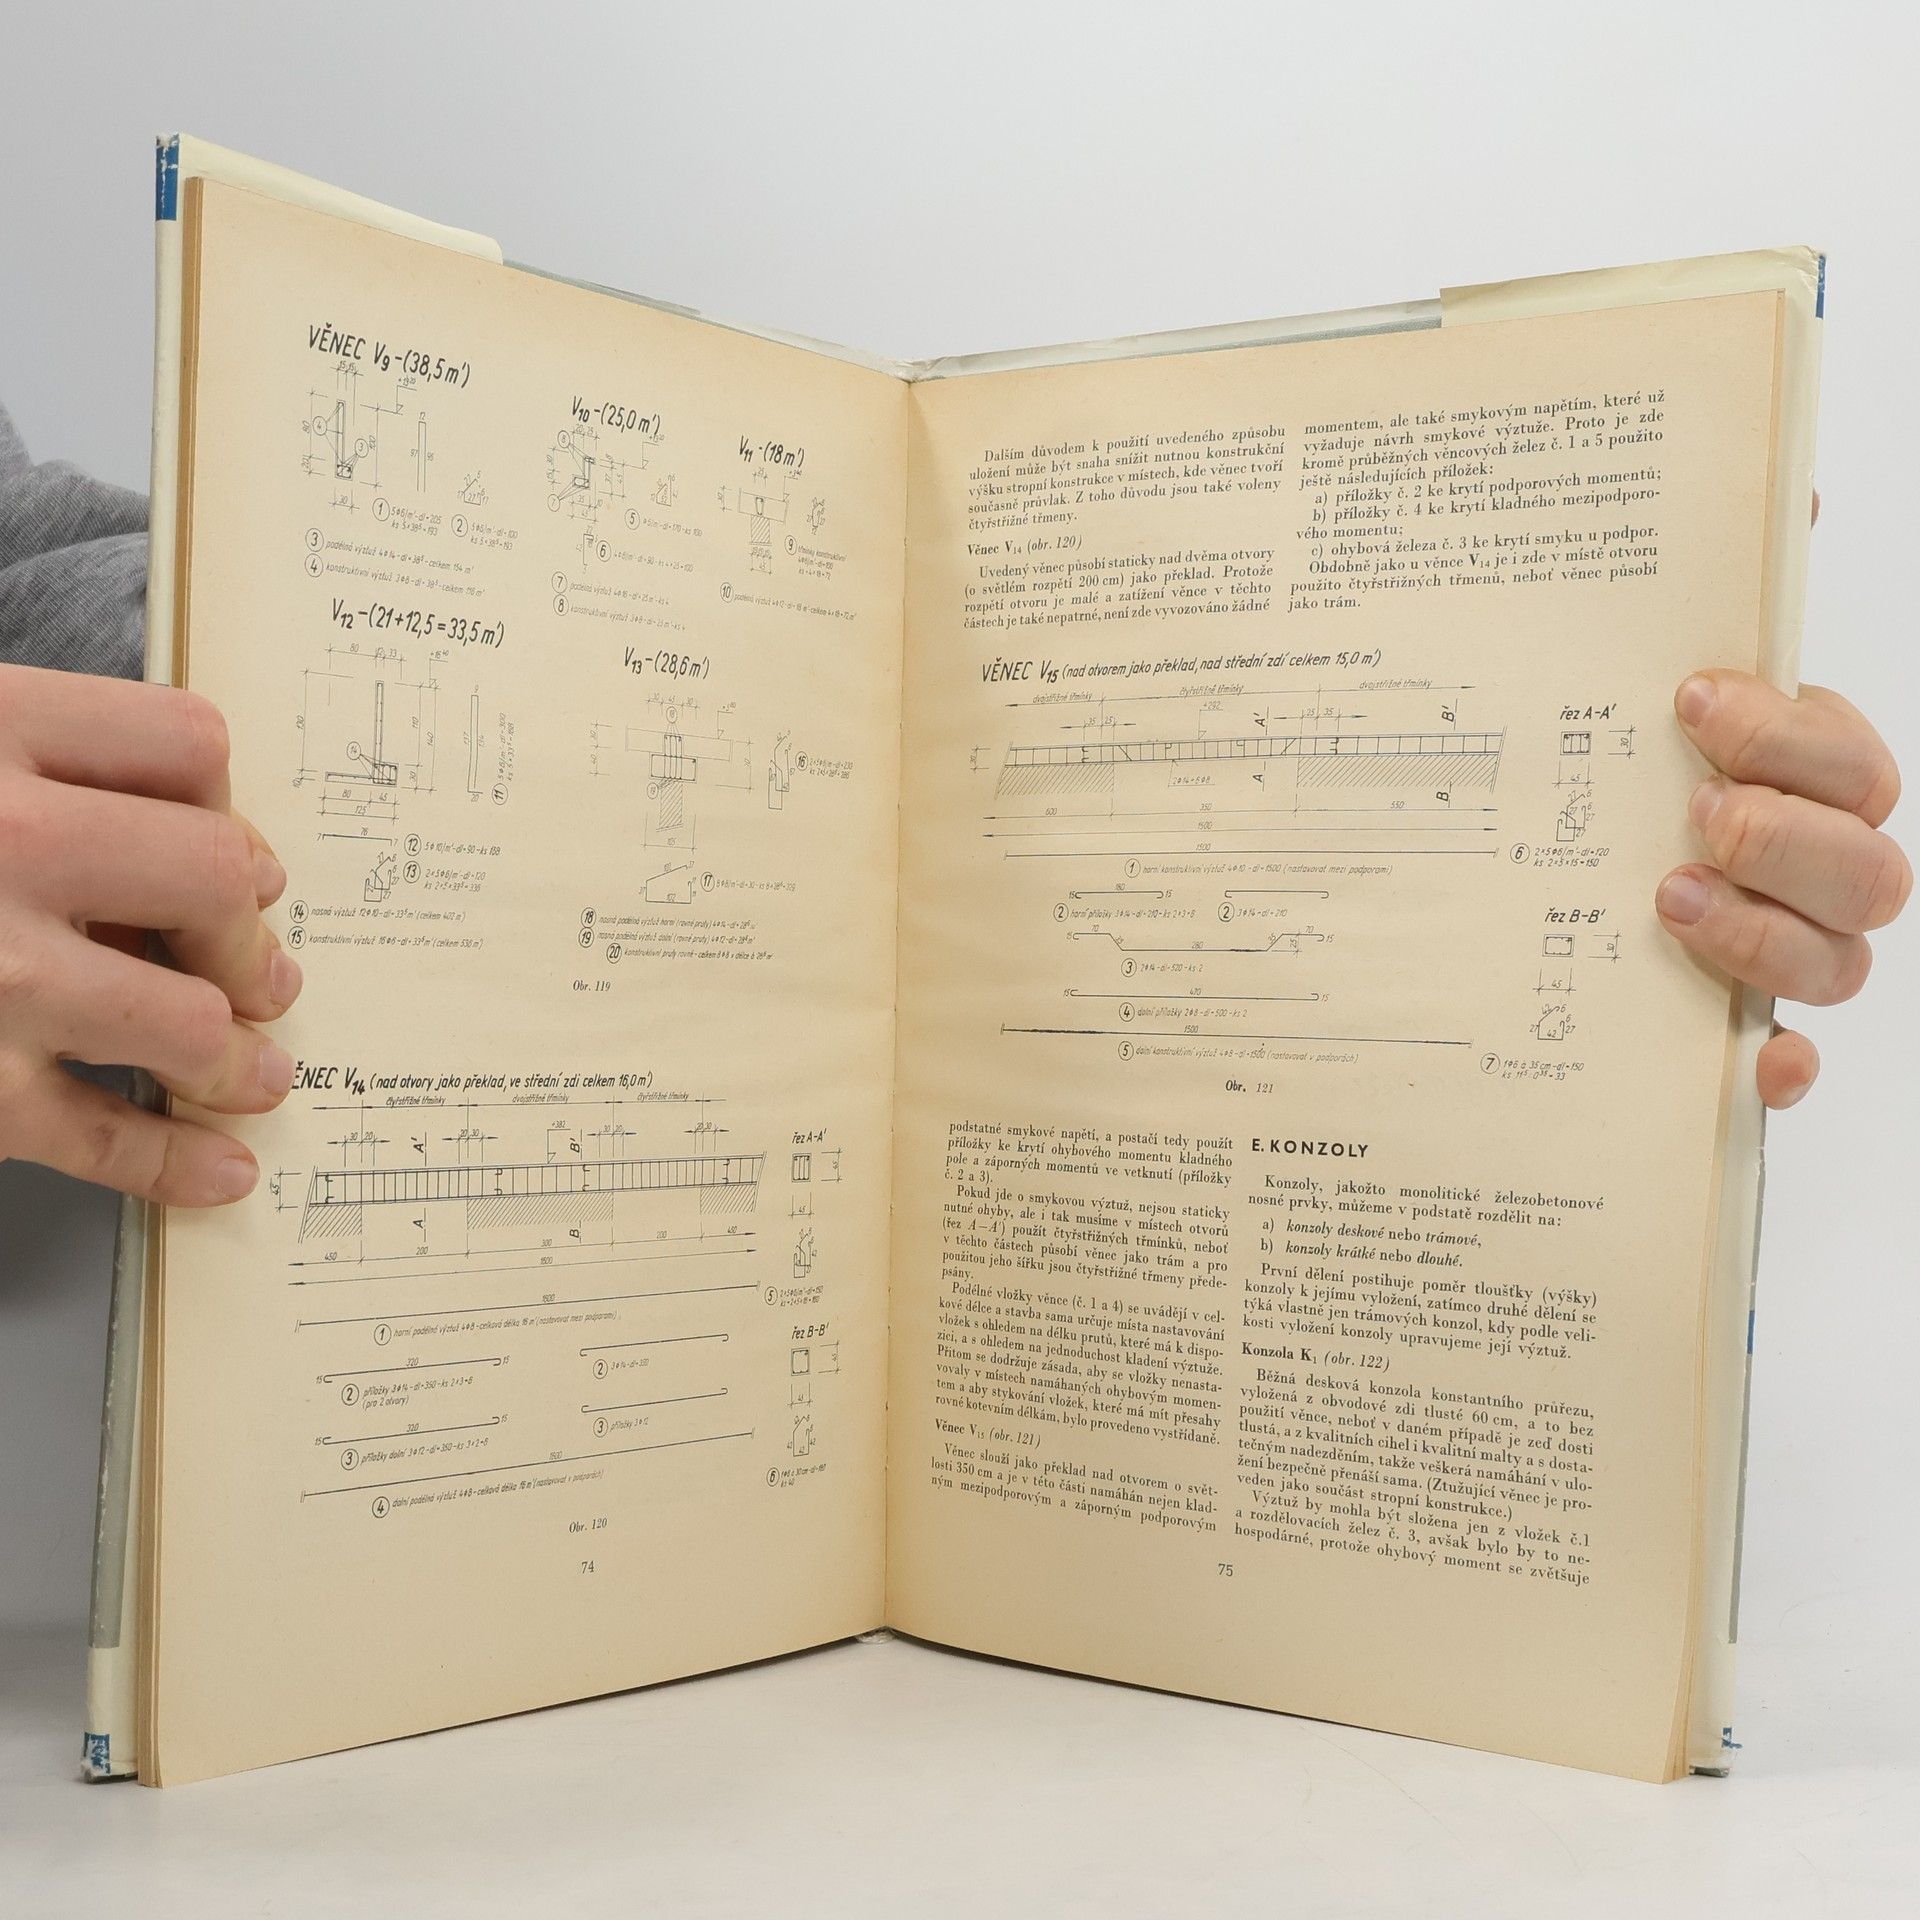 VĚNEC V9-(38,5m')
V10-(25,0m')
V11-(18m')
3 podélná výztuž 4Φ14-dl=38⁵-celkem 154 m'
4 konstruktivní výztuž 3Φ8-dl=38⁵-celkem 116 m'
7 podélná výztuž 4Φ16-dl=25m'-ks 4
8 konstruktivní výztuž 3Φ8-dl=25m'-ks 4
V12-(21+12,5=33,5m')
V13-(28,6m')
12 5Φ10/m'-dl=90-ks 168
13 2×5Φ6/m'-dl=120
ks 2×5×33⁵=336
14 nosná výztuž 12Φ10-dl=33⁵m' (celkem 402 m')
15 konstruktivní výztuž 16Φ6-dl=33⁵m' (celkem 536 m')
18 nosná podélná výztuž horní (rovné pruty) 4Φ14-dl=28⁶m'
19 nosná podélná výztuž dolní (rovné pruty) 4Φ12-dl=28⁶m'
20 konstruktivní pruty rovné-celkem 8Φ8 × délce à 28⁶m'
Obr. 119
ĚNEC V14 (nad otvory jako překlad, ve střední zdi celkem 16,0m')
čtyřstřižné třmínky dvojstřižné třmínky čtyřstřižné třmínky
řez A-A'
450 200 300 200 450
1600
5 2×5Φ6/m'-dl=150
ks=2×5×16=160
1600
1 horní podélná výztuž 4Φ8-celková délka 16m' (nastavovat mezi podporami)
řez B-B'
320 15
15
2 příložky 3Φ14-dl=350-ks 2×3=6
(pro 2 otvory)
2 3Φ14-dl=350
320 15
15
3 příložky dolní 3Φ12-dl=350-ks 3×2=6
3 příložky 3Φ12
1600
4 dolní podélná výztuž 4Φ8-celková délka 16m' (nastavovat v podporách)
6 1Φ6 à 30cm-dl=180
ks 40
Obr. 120
74
Dalším důvodem k použití uvedeného způsobu
uložení může být snaha snížit nutnou konstrukční
výšku stropní konstrukce v místech, kde věnec tvoří
současně průvlak. Z toho důvodu jsou také voleny
čtyřstřižné třmeny.
Věnec V14 (obr. 120)
Uvedený věnec působí staticky nad dvěma otvory
(o světlém rozpětí 200 cm) jako překlad. Protože
rozpětí otvoru je malé a zatížení věnce v těchto
částech je také nepatrné, není zde vyvozováno žádné
momentem, ale také smykovým napětím, které už
vyžaduje návrh smykové výztuže. Proto je zde
kromě průběžných věncových želez č. 1 a 5 použito
ještě následujících příložek:
a) příložky č. 2 ke krytí podporových momentů;
b) příložky č. 4 ke krytí kladného mezipodporo-
vého momentu;
c) ohybová železa č. 3 ke krytí smyku u podpor.
Obdobně jako u věnce V14 je i zde v místě otvoru
použito čtyřstřižných třmenů, neboť věnec působí
jako trám.
VĚNEC V15 (nad otvorem jako překlad, nad střední zdí celkem 15,0m')
dvojstřižné třmínky čtyřstřižné třmínky dvojstřižné třmínky
řez A-A'
600 350 550
1500
1500
1 horní konstruktivní výztuž 4Φ10-dl=1500 (nastavovat mezi podporami)
6 2×5Φ6/m'-dl=120
ks 2×5×15=150
15 180 15
2 horní příložky 3Φ14-dl=210-ks 2×3=6
2 3Φ14-dl=210
řez B-B'
15 70 280 70 15
3 2Φ14-dl=520-ks 2
15 470 15
4 dolní příložky 2Φ8-dl=500-ks 2
1500
5 dolní konstruktivní výztuž 4Φ8-dl=1500 (nastavovat v podporách)
7 1Φ6 à 35cm-dl=150
ks 11⁵:0³⁵=33
Obr. 121
podstatné smykové napětí, a postačí tedy použít
příložky ke krytí ohybového momentu kladného
pole a záporných momentů ve vetknutí (příložky
č. 2 a 3).
Pokud jde o smykovou výztuž, nejsou staticky
nutné ohyby, ale i tak musíme v místech otvorů
(řez A—A') použít čtyřstřižných třmínků, neboť
v těchto částech působí věnec jako trám a pro
použitou jeho šířku jsou čtyřstřižné třmeny přede-
psány.
Podélné vložky věnce (č. 1 a 4) se uvádějí v cel-
kové délce a stavba sama určuje místa nastavování
vložek s ohledem na délku prutů, které má k dispo-
zici, a s ohledem na jednoduchost kladení výztuže.
Přitom se dodržuje zásada, aby se vložky nenasta-
vovaly v místech namáhaných ohybovým momen-
tem a aby stykování vložek, které má mít přesahy
rovné kotevním délkám, bylo provedeno vystřídaně.
Věnec V15 (obr. 121)
Věnec slouží jako překlad nad otvorem o svět-
losti 350 cm a je v této části namáhán nejen klad-
ným mezipodporovým a záporným podporovým
E. KONZOLY
Konzoly, jakožto monolitické železobetonové
nosné prvky, můžeme v podstatě rozdělit na:
a) konzoly deskové nebo trámové,
b) konzoly krátké nebo dlouhé.
První dělení postihuje poměr tloušťky (výšky)
konzoly k jejímu vyložení, zatímco druhé dělení se
týká vlastně jen trámových konzol, kdy podle veli-
kosti vyložení konzoly upravujeme její výztuž.
Konzola K1 (obr. 122)
Běžná desková konzola konstantního průřezu,
vyložená z obvodové zdi tlusté 60 cm, a to bez
použití věnce, neboť v daném případě je zeď dosti
tlustá, a z kvalitních cihel i kvalitní malty a s dosta-
tečným nadezděním, takže veškerá namáhání v ulo-
žení bezpečně přenáší sama. (Ztužující věnec je pro-
veden jako součást stropní konstrukce.)
Výztuž by mohla být složena jen z vložek č.1
a rozdělovacích želez č. 3, avšak bylo by to ne-
hospodárné, protože ohybový moment se zvětšuje
75